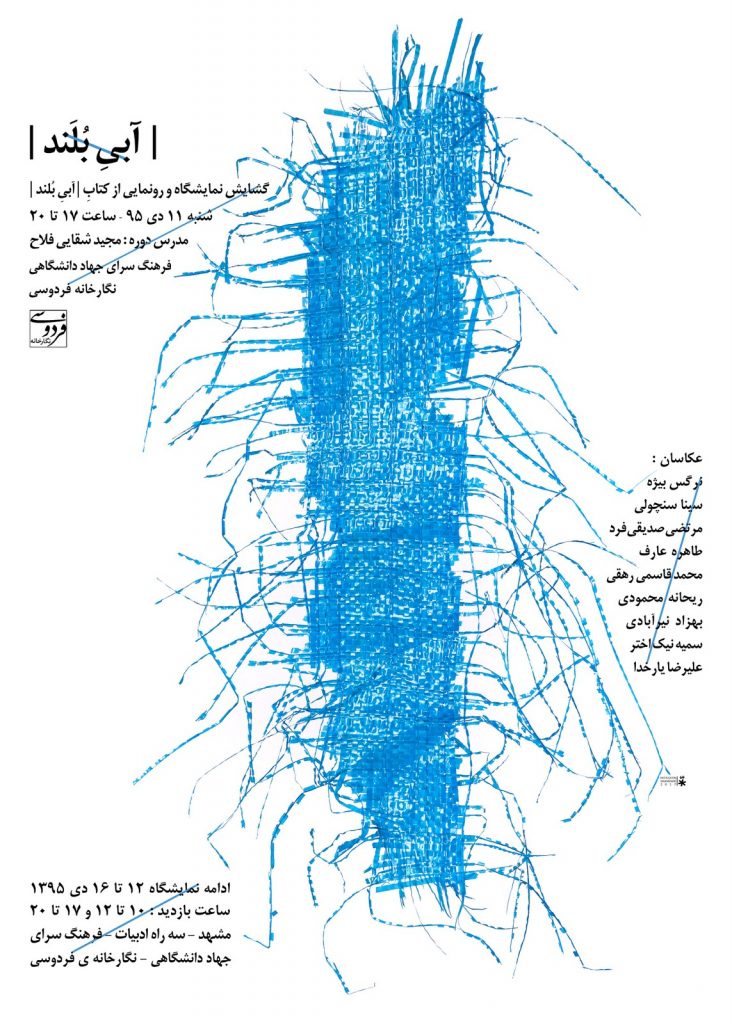 | آبیِ بُلَند |
گشایش نمایشگاه و رونمایی از کتابِ | آبیِ بُلند |
شنبه ۱۱ دی ۹۵ - ساعت ۱۷ تا ۲۰
مدرس دوره : مجید شقایی فلاح
فرهنگ سرای جهاد دانشگاهی
نگارخانه فردوسی
فردوسی
نگارخانه
عکاسان :
نرگس بیژه
سینا سنچولی
مرتضی صدیقی فرد
طاهره عارف
محمد قاسمی رهقی
ریحانه محمودی
بهزاد نیرآبادی
سمیه نیک اختر
علیرضا یارخدا
ادامه نمایشگاه ۱۲ تا ۱۶ دی ۱۳۹۵
ساعت بازدید : ۱۰ تا ۱۲ و ۱۷ تا ۲۰
مشهد - سه راه ادبیات - فرهنگ سرای
جهاد دانشگاهی - نگارخانه ی فردوسی